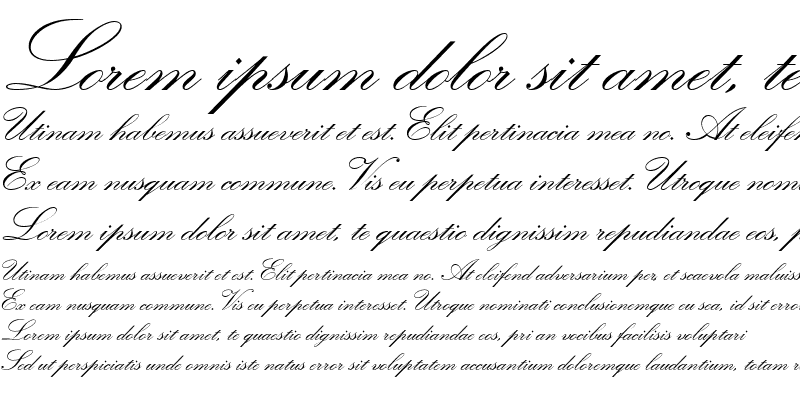 Lorem ipsum dolor sit amet, te
Utinam habemus assueverit et est. Elit pertinacia mea no. At eleifen
Ex eam nusquam commune. Vis eu perpetua interesset. Utroque nomi
Lorem ipsum dolor sit amet, te quaestio dignissim repudiandae eos, p
Utinam habemus assueverit et est. Elit pertinacia mea no. At eleifend adversarium per, et scaevola maluiss
Ex eam nusquam commune. Vis eu perpetua interesset. Utroque nominati conclusionemque eu sea, id sit error
Lorem ipsum dolor sit amet, te quaestio dignissim repudiandae eos, pri an vocibus facilisis voluptari
Sed ut perspiciatis unde omnis iste natus error sit voluptatem accusantium doloremque laudantium, totam r